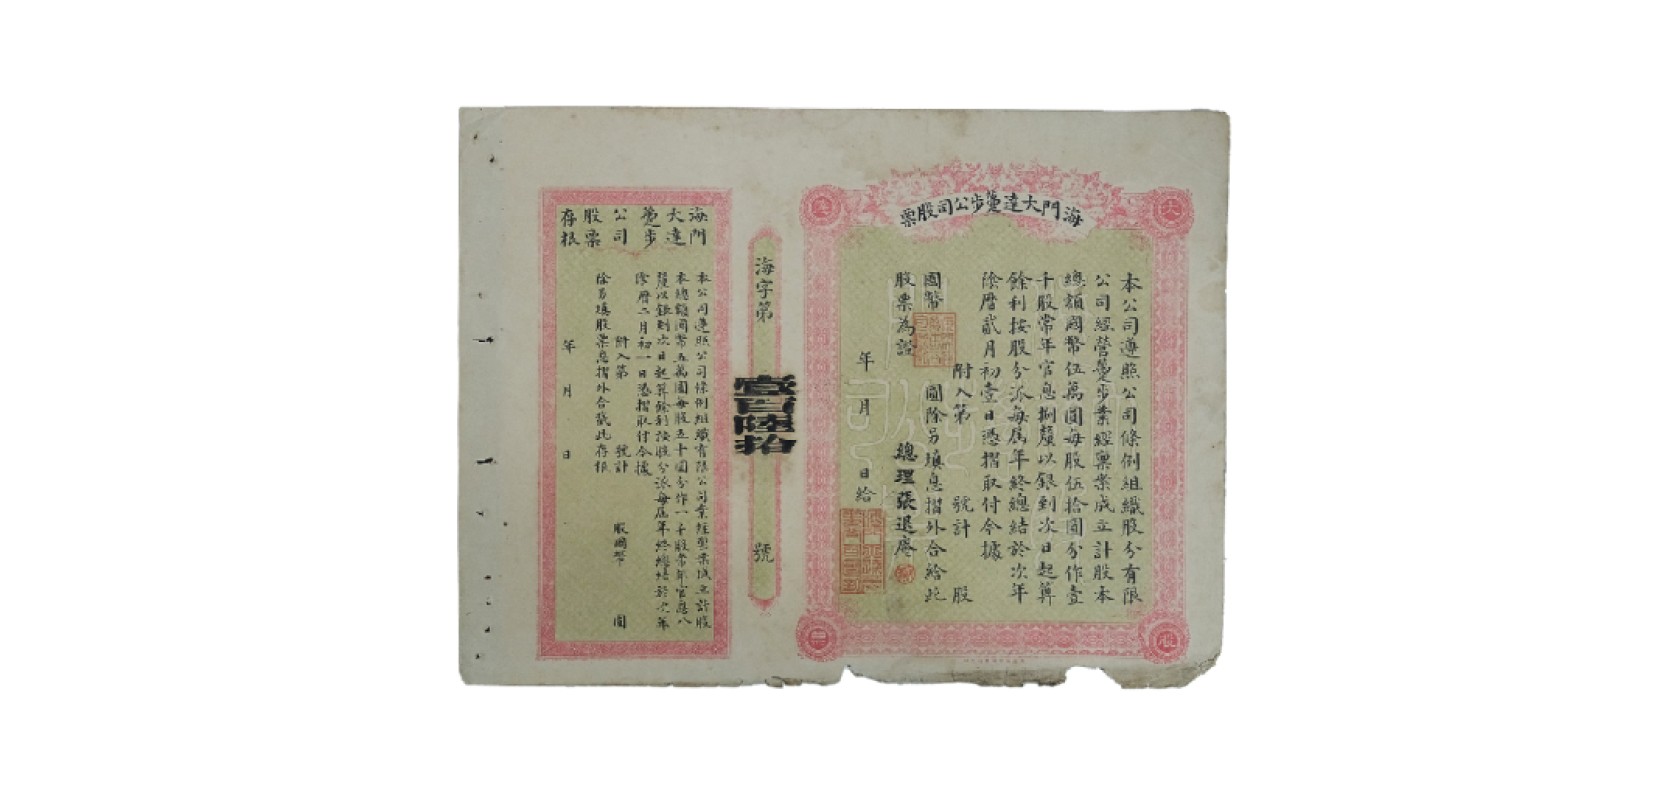 海門大達躉步公司股票
本公司遵照公司條例組織股分有限
公司經營躉步業經稟業成立計股本
總額國幣伍萬圓每股伍拾圓分作壹
千股常年官息捌釐以銀到次日起算
餘利按股分派每屆年終總結於次年
陰曆貳月初壹日憑摺取付合據
附入第 號計 股
國幣 圓除另填息摺外合給此
股票為證
總理張退庵
年 月 日給
海字第 號
壹百陸拾
海門
大達
躉步
公司
股票
存根
本公司遵照公司條例組織有限公司業經稟業成立計股
本總額國幣五萬圓每股五十圓分作一千股常年官息八
釐以銀到次日起算餘利按股分派每屆年終總結於次年
陰曆二月初一日憑摺取付合據
附入第 號計 股國幣 圓
除另填股票息摺外合截此存根
年 月 日